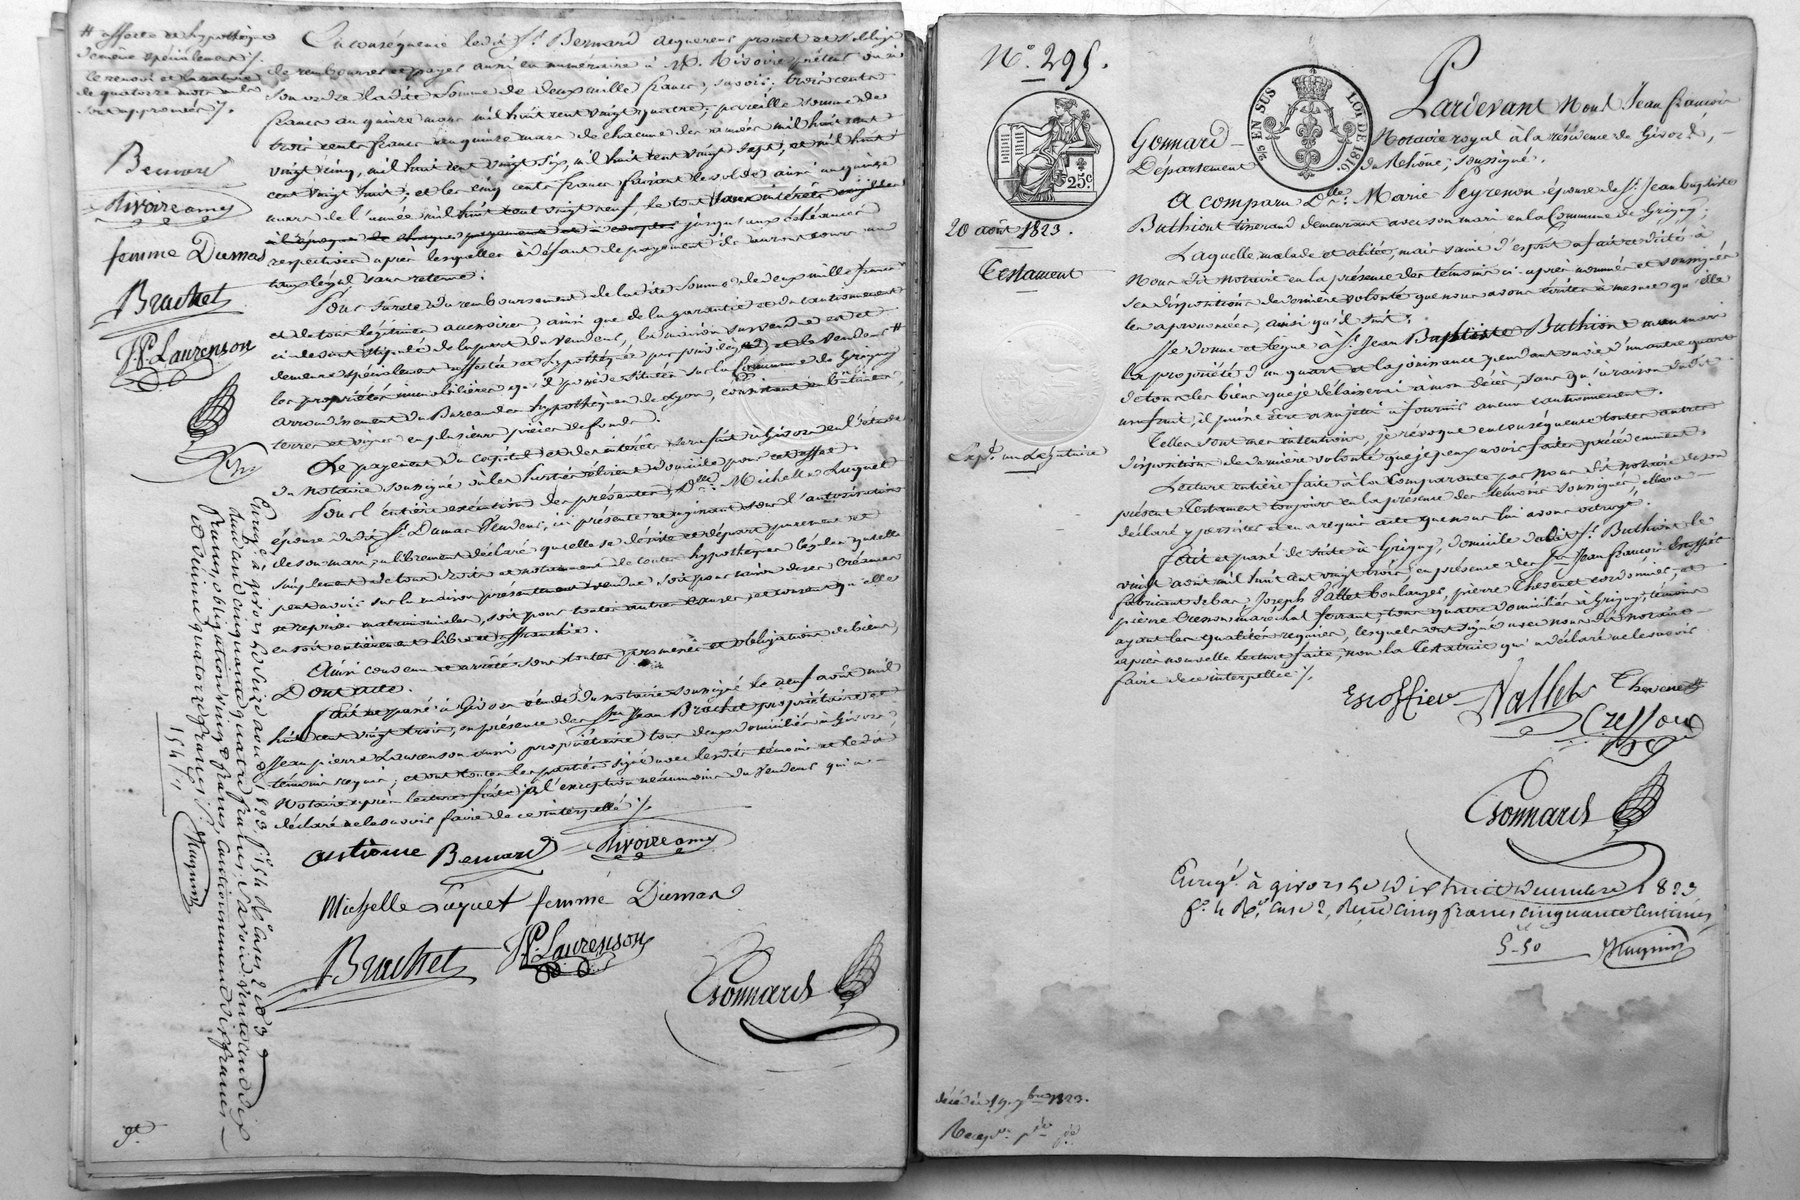 # affecte et hypothèque
demême spécialement /.
le renvoi et la rature
de quatorze mots nuls
sont approuvés /.
Bernard
Rivoire amy
femme Dumas
Brachet
JP. Laurenson
En conséquence ledit Sr. Bernard acquéreur promet et s'oblige
de rembourser et payer aussi en numéraire à M. Rivoire prêteur ou à
son ordre ladite somme de deux mille francs, savoir; trois cents
francs au quinze mars mil huit cent vingt quatre; pareille somme de
trois cents francs au quinze mars de chacune des années mil huit cent
vingt cinq, mil huit cent vingt six, mil huit cent vingt sept, et mil huit
cent vingt huit; et les cinq cents francs faisant le solde aussi au quinze
mars de l'année mil huit cent vingt neuf, le tout
respectives après lesquelles à défaut de payement ils auront cours au
taux légal sans retenue.
Pour sûreté du remboursement de ladite somme de deux mille francs
et de tous légitimes accessoires, ainsi que de la garantie et du cautionnement
ci dessus stipulés de la part du vendeur, la maison survendue est et
demeure spécialement affectée et hypothéquée par privilège, et le vendeur #
les propriétés immobilières qu'il possède situées sur la Commune de Grigny
arrondissement du Bureau des hypothèques de Lyon, consistant en bâtiment,
terres et vignes en plusieurs pièces de fonds.
Le payement du capital et des intérêts sera fait à Givors en l'étude
du notaire soussigné où les parties élisent domicile pour cet effet.
Pour l'entière exécution des présentes, Dlle. Michelle Luquet
épouse dudit Sr. Dumas vendeur, ici présente et agissant sous l'autorisation
de son mari, a librement déclaré qu'elle se désiste et départ purement et
simplement de tous droits et notamment de toutes hypothèques légales qu'elle
peut avoir sur la maison présentement vendue, soit pour raison de ses créances
et reprises matrimoniales, soit pour toutes autres causes, et consent qu'elle
en soit entièrement libre et affranchie.
Ainsi convenu et arrêté sous toutes promesses et obligations de biens,
Dont acte.
Fait et passé à Givors étude du notaire soussigné le neuf août mil
huit cent vingt trois, en présence des Srs. Jean Brachet propriétaire et
Jean pierre Laurenson aussi propriétaire tous deux domiciliés à Givors,
témoins requis; et ont toutes les parties signé avec lesdits témoins et ledit
Notaire après lecture faite, à l'exception néanmoins du vendeur qui a
déclaré ne le savoir faire de ce interpellé /.
antione Bernard
Rivoire amy
Michelle Luquet femme Dumas
Brachet
JP. Laurenson
Gonnard
Enregé. à givors le seize août 1823 fo. 154 Ro. Cases 2 et 3
francs, obligation vingt francs, Cautionnement dix francs
et dixième quatorze francs
154
N° 295.
25 EN SUS
LOI DE 1816
25c.
20 août 1823.
Testament
Expn. au Légataire
Pardevant Nous Jean françois
Gonnard Notaire royal à la résidence de Givors,
Département du Rhône, soussigné.
A comparu Dlle. Marie Peyrenon épouse de Sr. Jean Baptiste
Buthiont tisserand demeurant avec son mari en la Commune de Grigny;
Laquelle malade et alitée, mais saine d'esprit a fait et dicté à
Nous dit notaire en la présence des témoins ci-après nommés et soussignés
ses dispositions de dernière volonté que nous avons écrites à mesure qu'elle
les a prononcées, ainsi qu'il suit:
Je donne et lègue à Sr. Jean Baptiste Buthiont mon mari
la propriété d'un quart et la jouissance pendant sa vie d'un autre quart
de tous les biens que je délaisserai à mon décès, sans qu'à raison dudit
usufruit, il puisse être assujeti à fournir aucun cautionnement.
Telles sont mes intentions, je révoque en conséquence toutes autres
dispositions de dernière volonté que je peux avoir faites précédemment.
Lecture entière faite à la Comparante par Nous dit notaire de son
présent Testament toujours en la présence des témoins soussignés, elle a
déclaré y persister et en a requis acte que nous lui avons octroyé,
Fait et passé de suite à Grigny, domicile dudit Sr. Buthiont le
vingt août mil huit cent vingt trois, en présence des Srs. Jean françois Escoffier
fabricant de bas, Joseph Vallet boulanger, pierre Thevenet cordonnier, et
pierre Cresson maréchal ferrant, tous quatre domiciliés à Grigny, témoins
ayant les qualités requises, lesquels ont signé avec nous dit notaire
après nouvelle lecture faite, non la Testatrice qui a déclaré ne le savoir
faire de ce interpellée /.
Escoffier Vallet Thevenet
Cresson
Gonnard
Enregé. à givors le dix huit decembre 1823
fo. 4 Ro. Case 2, Reçu Cinq francs cinquante Centimes
5-50
décédée 19. 7bre 1823.